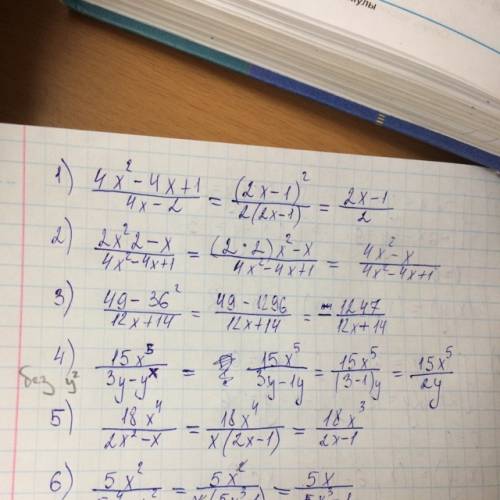 улы
1) (4x² - 4x + 1)/(4x - 2) = (2x - 1)²/(2(2x - 1)) = (2x - 1)/2
2) (2x²2 - x)/(4x² - 4x + 1) = ((2·2)x² - x)/(4x² - 4x + 1) = (4x² - x)/(4x² - 4x + 1)
3) (49 - 36²)/(12x + 14) = (49 - 1296)/(12x + 14) = -1247/(12x + 14)
4) 15x⁵/(3y - yˣ) = 15x⁵/(3y - 1y) = 15x⁵/((3 - 1)y) = 15x⁵/2y
без y²
5) 18x⁴/(2x² - x) = 18x⁴/(x(2x - 1)) = 18x³/(2x - 1)
6) 5x² = 5x² = 5x